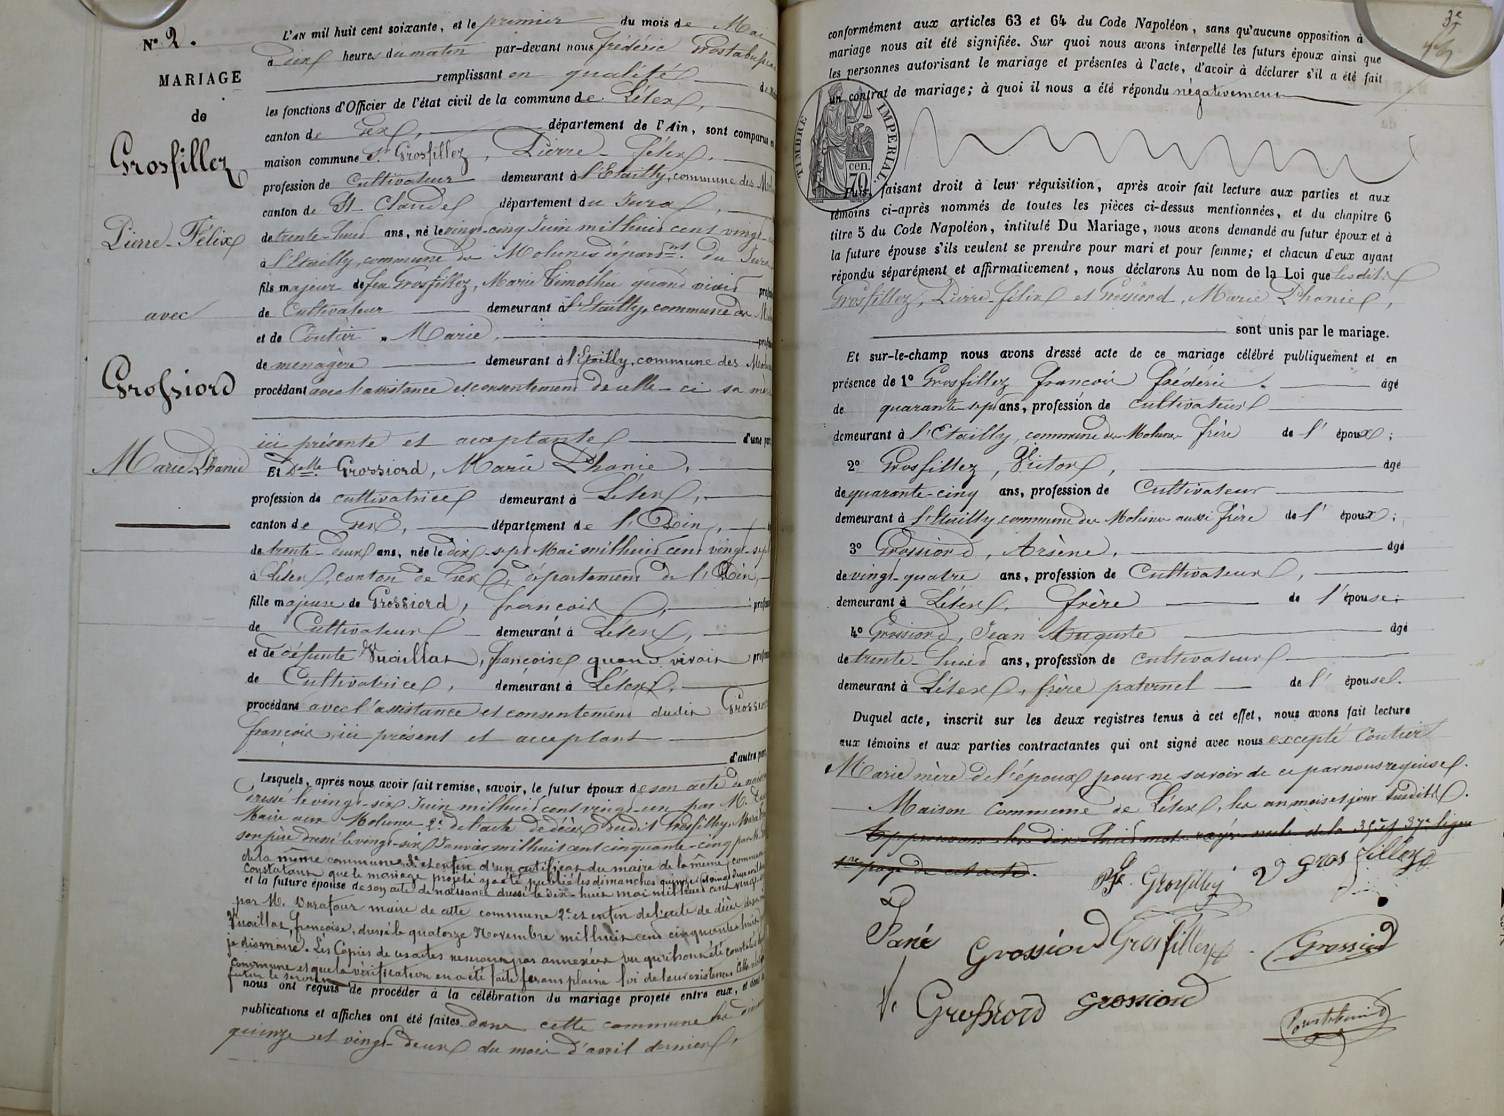 N° 2.
MARIAGE
de
Grosfillez
Pierre-Félix
avec
Grossiord
Marie Phanie
L'AN mil huit cent soixante, et le premier du mois de Mai
à dix heure du matin par-devant nous frédéric
remplissant en qualité de
les fonctions d'Officier de l'état civil de la commune de Lélex,
canton de Gex, département de l'Ain, sont comparus en
maison commune Sr. Grosfillez, Pierre-félix
profession de Cultivateur demeurant à l'Etailly, commune des
canton de St Claude département du Jura,
de trente-huit ans, né le vingt-cinq Juin mil huit cent vingt-
à l'Etailly, commune de Molunes départnt. du Jura
fils majeur de feu Grosfillez, Marie Timothée quand vivait
de Cultivateur demeurant à l'Etailly, commune des
et de Coutier Marie,
de menagère demeurant à l'Etailly, commune des
procédant avec l'assistance et consentement de celle-ci sa
ici présente et acceptante d'une part
Et Delle Grossiord, Marie Phanie,
profession de cultivatrice demeurant à Lélex,
canton de Gex, département de l'Ain,
de trente-deux ans, née le dix-sept Mai mil huit cent vingt-sept
à Lélex, canton de Gex, département de l'Ain,
fille majeure de Grossiord, françois
de Cultivateur demeurant à Lélex,
et de défunte Vuaillat, françoise quand vivait
de Cultivatrice, demeurant à Lélex,
procédant avec l'assistance et consentement dudit
françois, ici présent et acceptant
d'autre part
Lesquels, après nous avoir fait remise, savoir, le futur époux de son acte de
dressé le vingt-six Juin mil huit cent vingt-un par M.
Maire aux Molunes 2° de l'acte de décès dudit Grosfillez,
son père dressé le vingt-six Janvier mil huit cent cinquante-cinq par
de la même commune 3° et enfin d'un certificat du maire de la même
constatant que le mariage projeté a été publié les dimanches quinze
et la future épouse de son acte de naissance dressé le dix-huit mai mil huit cent
par M. maire de cette commune 2° et enfin de l'acte de décès
Vuaillat, françoise, dressé le quatorze Novembre mil huit cent cinquante
Les Copies de ces actes resteront annexées
commune et que la vérification en a été faite feront pleine foi de leur existence
nous ont requis de procéder à la célébration du mariage projeté entre eux, et
publications et affiches ont été faites dans cette commune les
quinze et vingt-deux du mois d'avril dernier,
conformément aux articles 63 et 64 du Code Napoléon, sans qu'aucune opposition à
mariage nous ait été signifiée. Sur quoi nous avons interpellé les futurs époux ainsi que
les personnes autorisant le mariage et présentes à l'acte, d'avoir à déclarer s'il a été fait
un contrat de mariage; à quoi il nous a été répondu négativement
TIMBRE IMPÉRIAL
70 cen.
Puis, faisant droit à leur réquisition, après avoir fait lecture aux parties et aux
témoins ci-après nommés de toutes les pièces ci-dessus mentionnées, et du chapitre 6
titre 5 du Code Napoléon, intitulé Du Mariage, nous avons demandé au futur époux et à
la future épouse s'ils veulent se prendre pour mari et pour femme; et chacun d'eux ayant
répondu séparément et affirmativement, nous déclarons Au nom de la Loi que lesdits
Grosfillez, Pierre-félix et Grossiord, Marie Phanie,
sont unis par le mariage.
Et sur-le-champ nous avons dressé acte de ce mariage célébré publiquement et en
présence de 1° Grosfillez françois frédéric âgé
de quarante-sept ans, profession de cultivateur
demeurant à l'Etailly, commune des Molunes frère de l'époux;
2° Grosfillez, Victor, âgé
de quarante-cinq ans, profession de Cultivateur
demeurant à l'Etailly, commune des Molunes aussi frère de l'époux;
3° Grossiord, Arsène, âgé
de vingt-quatre ans, profession de Cultivateur,
demeurant à Lélex, frère de l'épouse;
4° Grossiord, Jean Auguste âgé
de trente-huit ans, profession de cultivateur
demeurant à Lélex, frère paternel de l'épouse.
Duquel acte, inscrit sur les deux registres tenus à cet effet, nous avons fait lecture
aux témoins et aux parties contractantes qui ont signé avec nous excepté Coutier
Marie mère de l'époux pour ne savoir de ce par nous requise.
Maison commune de Lélex, les an mois et jour susdits.
Pfx. Grosfillez V Grosfillez
Fané Grossiord Grosfillez Grossiord
Grossiord Grossiord